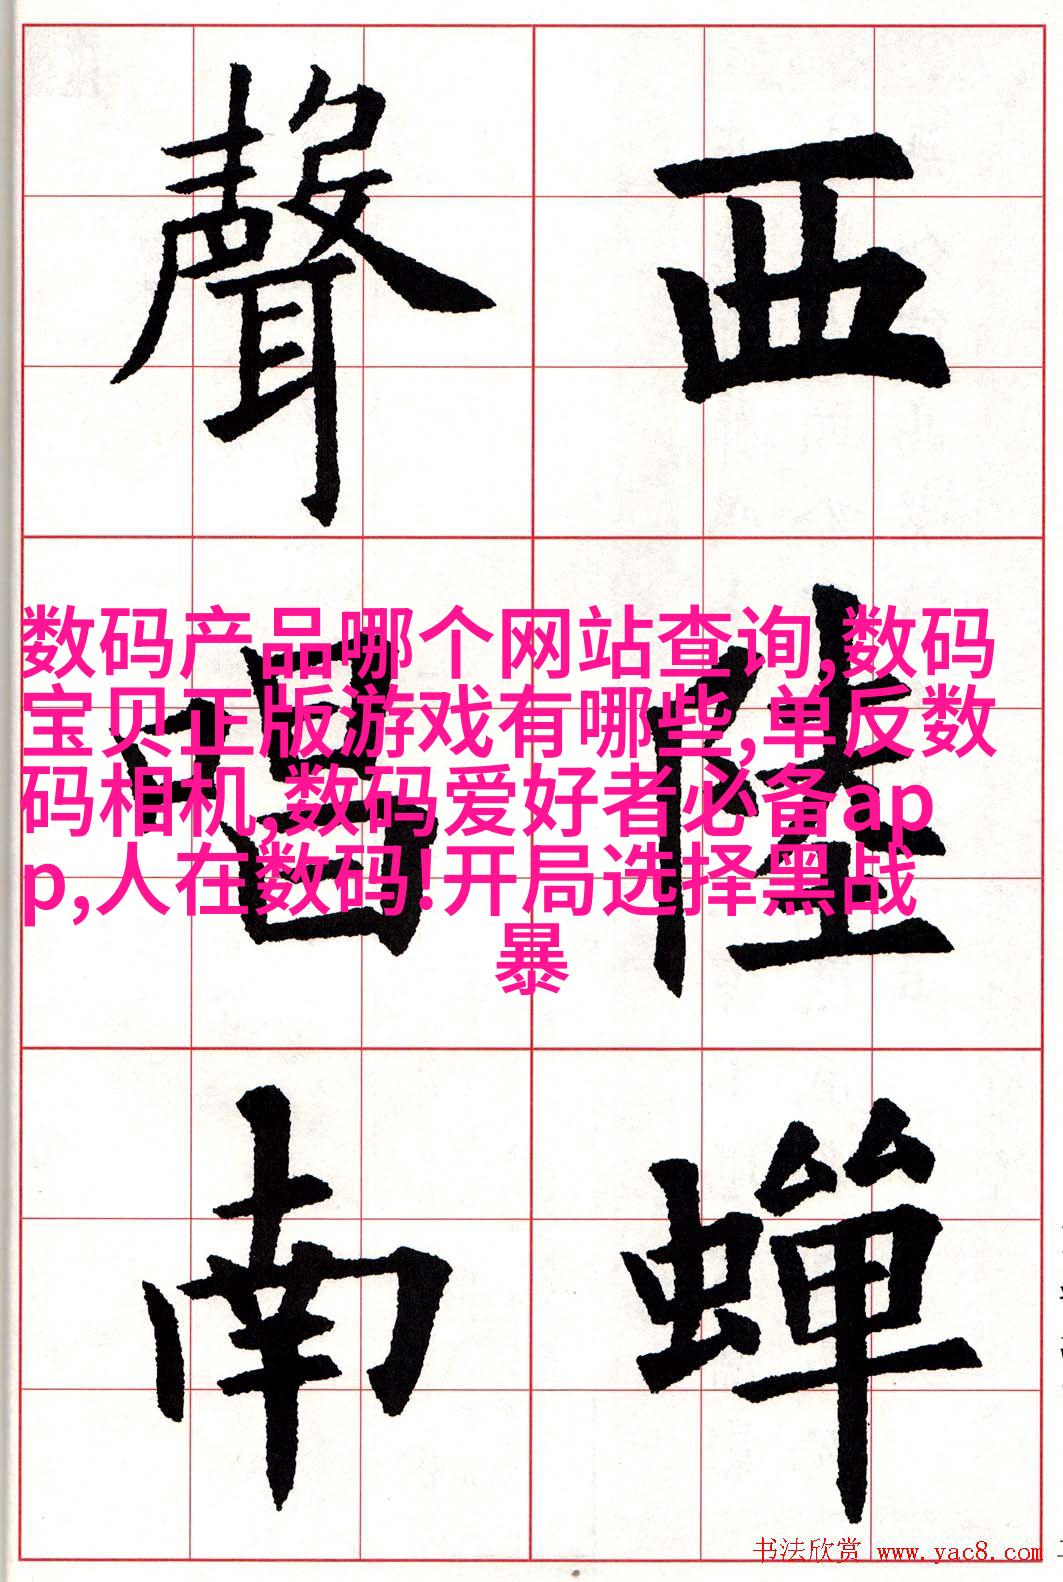 西陸蟬
聲唱南
数码产品哪个网站查询,数码
宝贝正版游戏有哪些,单反数
码相机,数码爱好者必备ap
p,人在数码!开局选择黑战
暴
书法欣赏 www.yac8.com